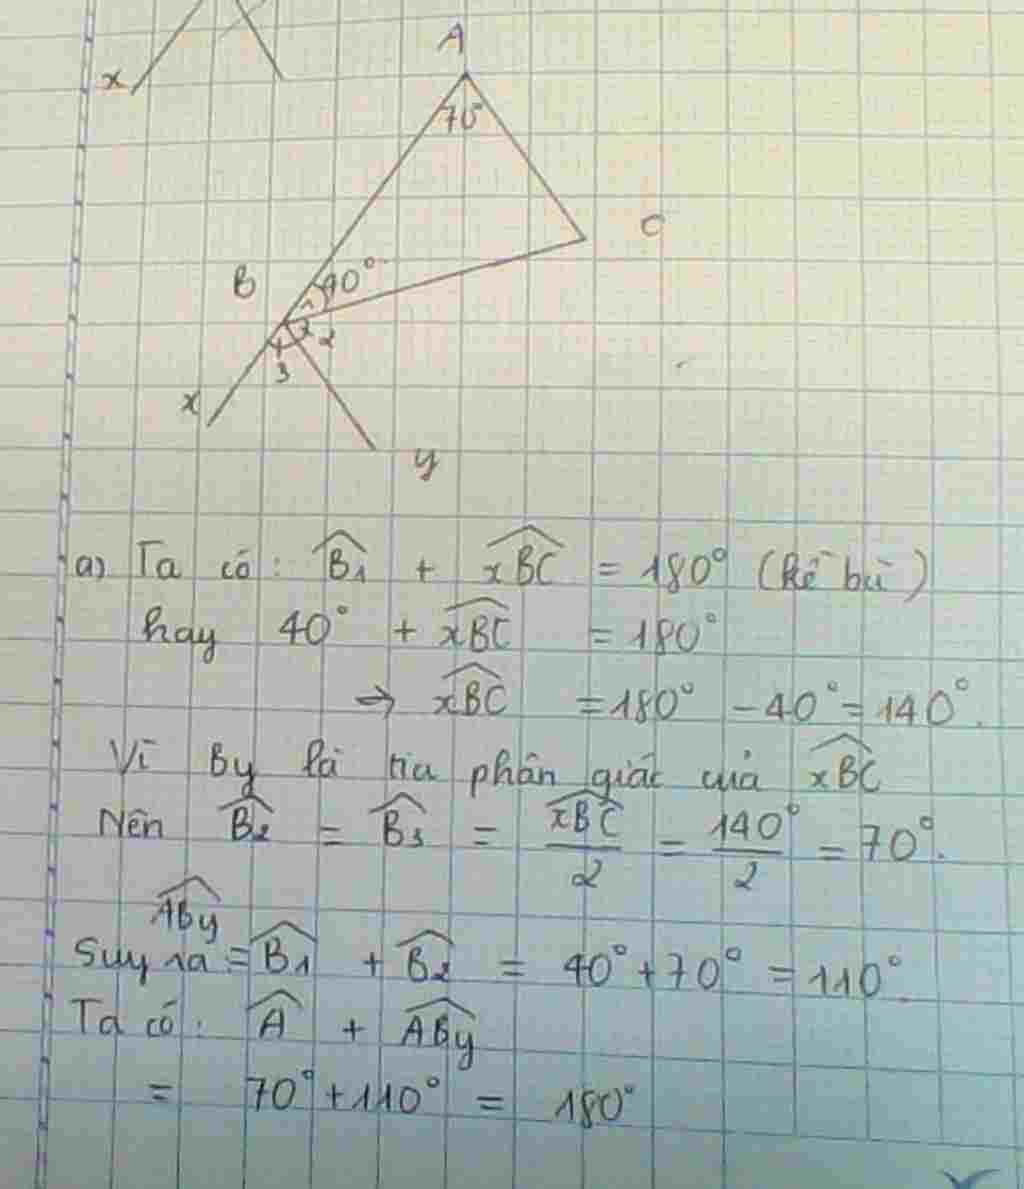 x
A
70°
C
B
40°
1
2
3
x
y
a) Ta có: B̂₁ + x̂BC = 180° (kề bù)
hay 40° + x̂BC = 180°
→ x̂BC = 180° - 40° = 140°.
Vì By là tia phân giác của x̂BC
Nên B̂₂ = B̂₃ = x̂BC/2 = 140°/2 = 70°.
ÂBy
Suy ra = B̂₁ + B̂₂ = 40° + 70° = 110°.
Ta có: Â + ÂBy
= 70° + 110° = 180°